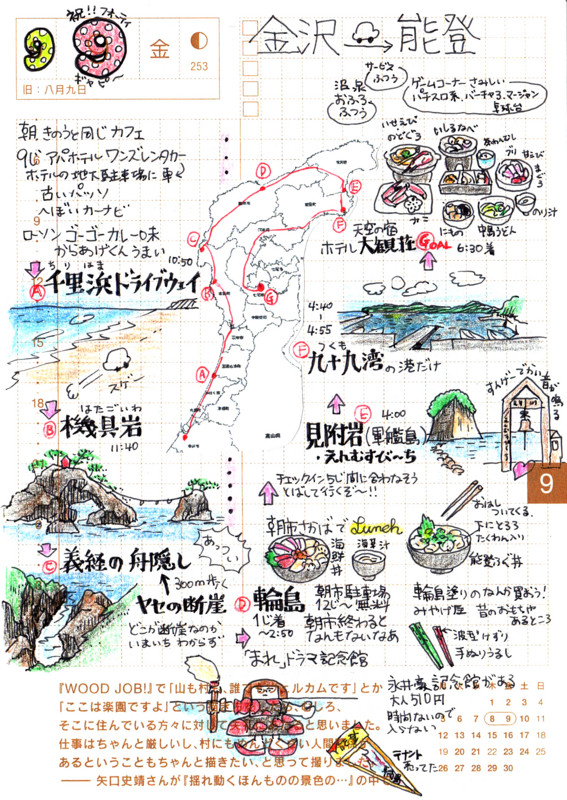 祝!! フォーティ
99
ギャピ〜
金
253
旧：八月九日
金沢→能登
朝 きのうと同じ カフェ
9じ アパホテル ワンズレンタカー
ホテルの地下大駐車場に 車
古いパッソ
へぼいカーナビ
ローソン ゴーゴーカレー味
からあげくん うまい
10:50
ちりはま
Ⓐ 千里浜ドライブウェイ
スゲー
はたごいわ
Ⓑ 機具岩
11:40
あっつい
Ⓒ 義経の舟隠し
↑300m歩く
ヤセの断崖
どこが断崖なのか
いまいち わからず
温泉
おふろ
ふつう
サービス
ふつう
ゲームコーナー さみしい
パチスロ系、バーチャ3、マージャン
卓球台
いせえび
のどぐろ
いしるなべ
ブリ
甘えび
まぐろ
カニ
にもの
中島うどん
のり汁
天空の宿
ホテル 大観荘 GOAL
6:30着
A
B
C
D
E
F
G
4:40
4:55
つくも
Ⓕ 九十九湾の港だけ
Ⓔ 4:00
見附岩(軍艦島)
・えんむすびーち
すんげーでかい音が鳴る
9
チェックイン5じ 間に合わなそう
とばして行くぞ〜!!
朝市さかばで Lunch
海鮮丼
海草汁
おはし
ついてくる
下にとろろ
たくわん入り
能登ふぐ丼
Ⓓ 輪島
1じ着
〜2:50
朝市駐車場
12じ〜 無料
朝市終わると
なんもないなあ
「まれ」ドラマ記念館
輪島塗りのなんか買おう!
みやげ屋 昔のおもちゃ
あるところ
波型けずり
手ぬりうるし
永井豪記念館がある
大人510円
時間ないので
入らない
ペナント
売ってた
輪島
土 日
1 2 3 4
6 7 8 9 10 11
13 14 15 16 17 18
19 20 21 22 23 24 25
26 27 28 29 30
『WOOD JOB!』で「山も村
ルカムです」とか
「ここは楽園ですよ」という
そこに住んでいる方々に対
と思いました。
仕事はちゃんと厳しいし、村にも
人間
あるということもちゃんと描きたい、と思って撮りました
―― 矢口史靖さんが『揺れ動くほんものの景色の…』の中